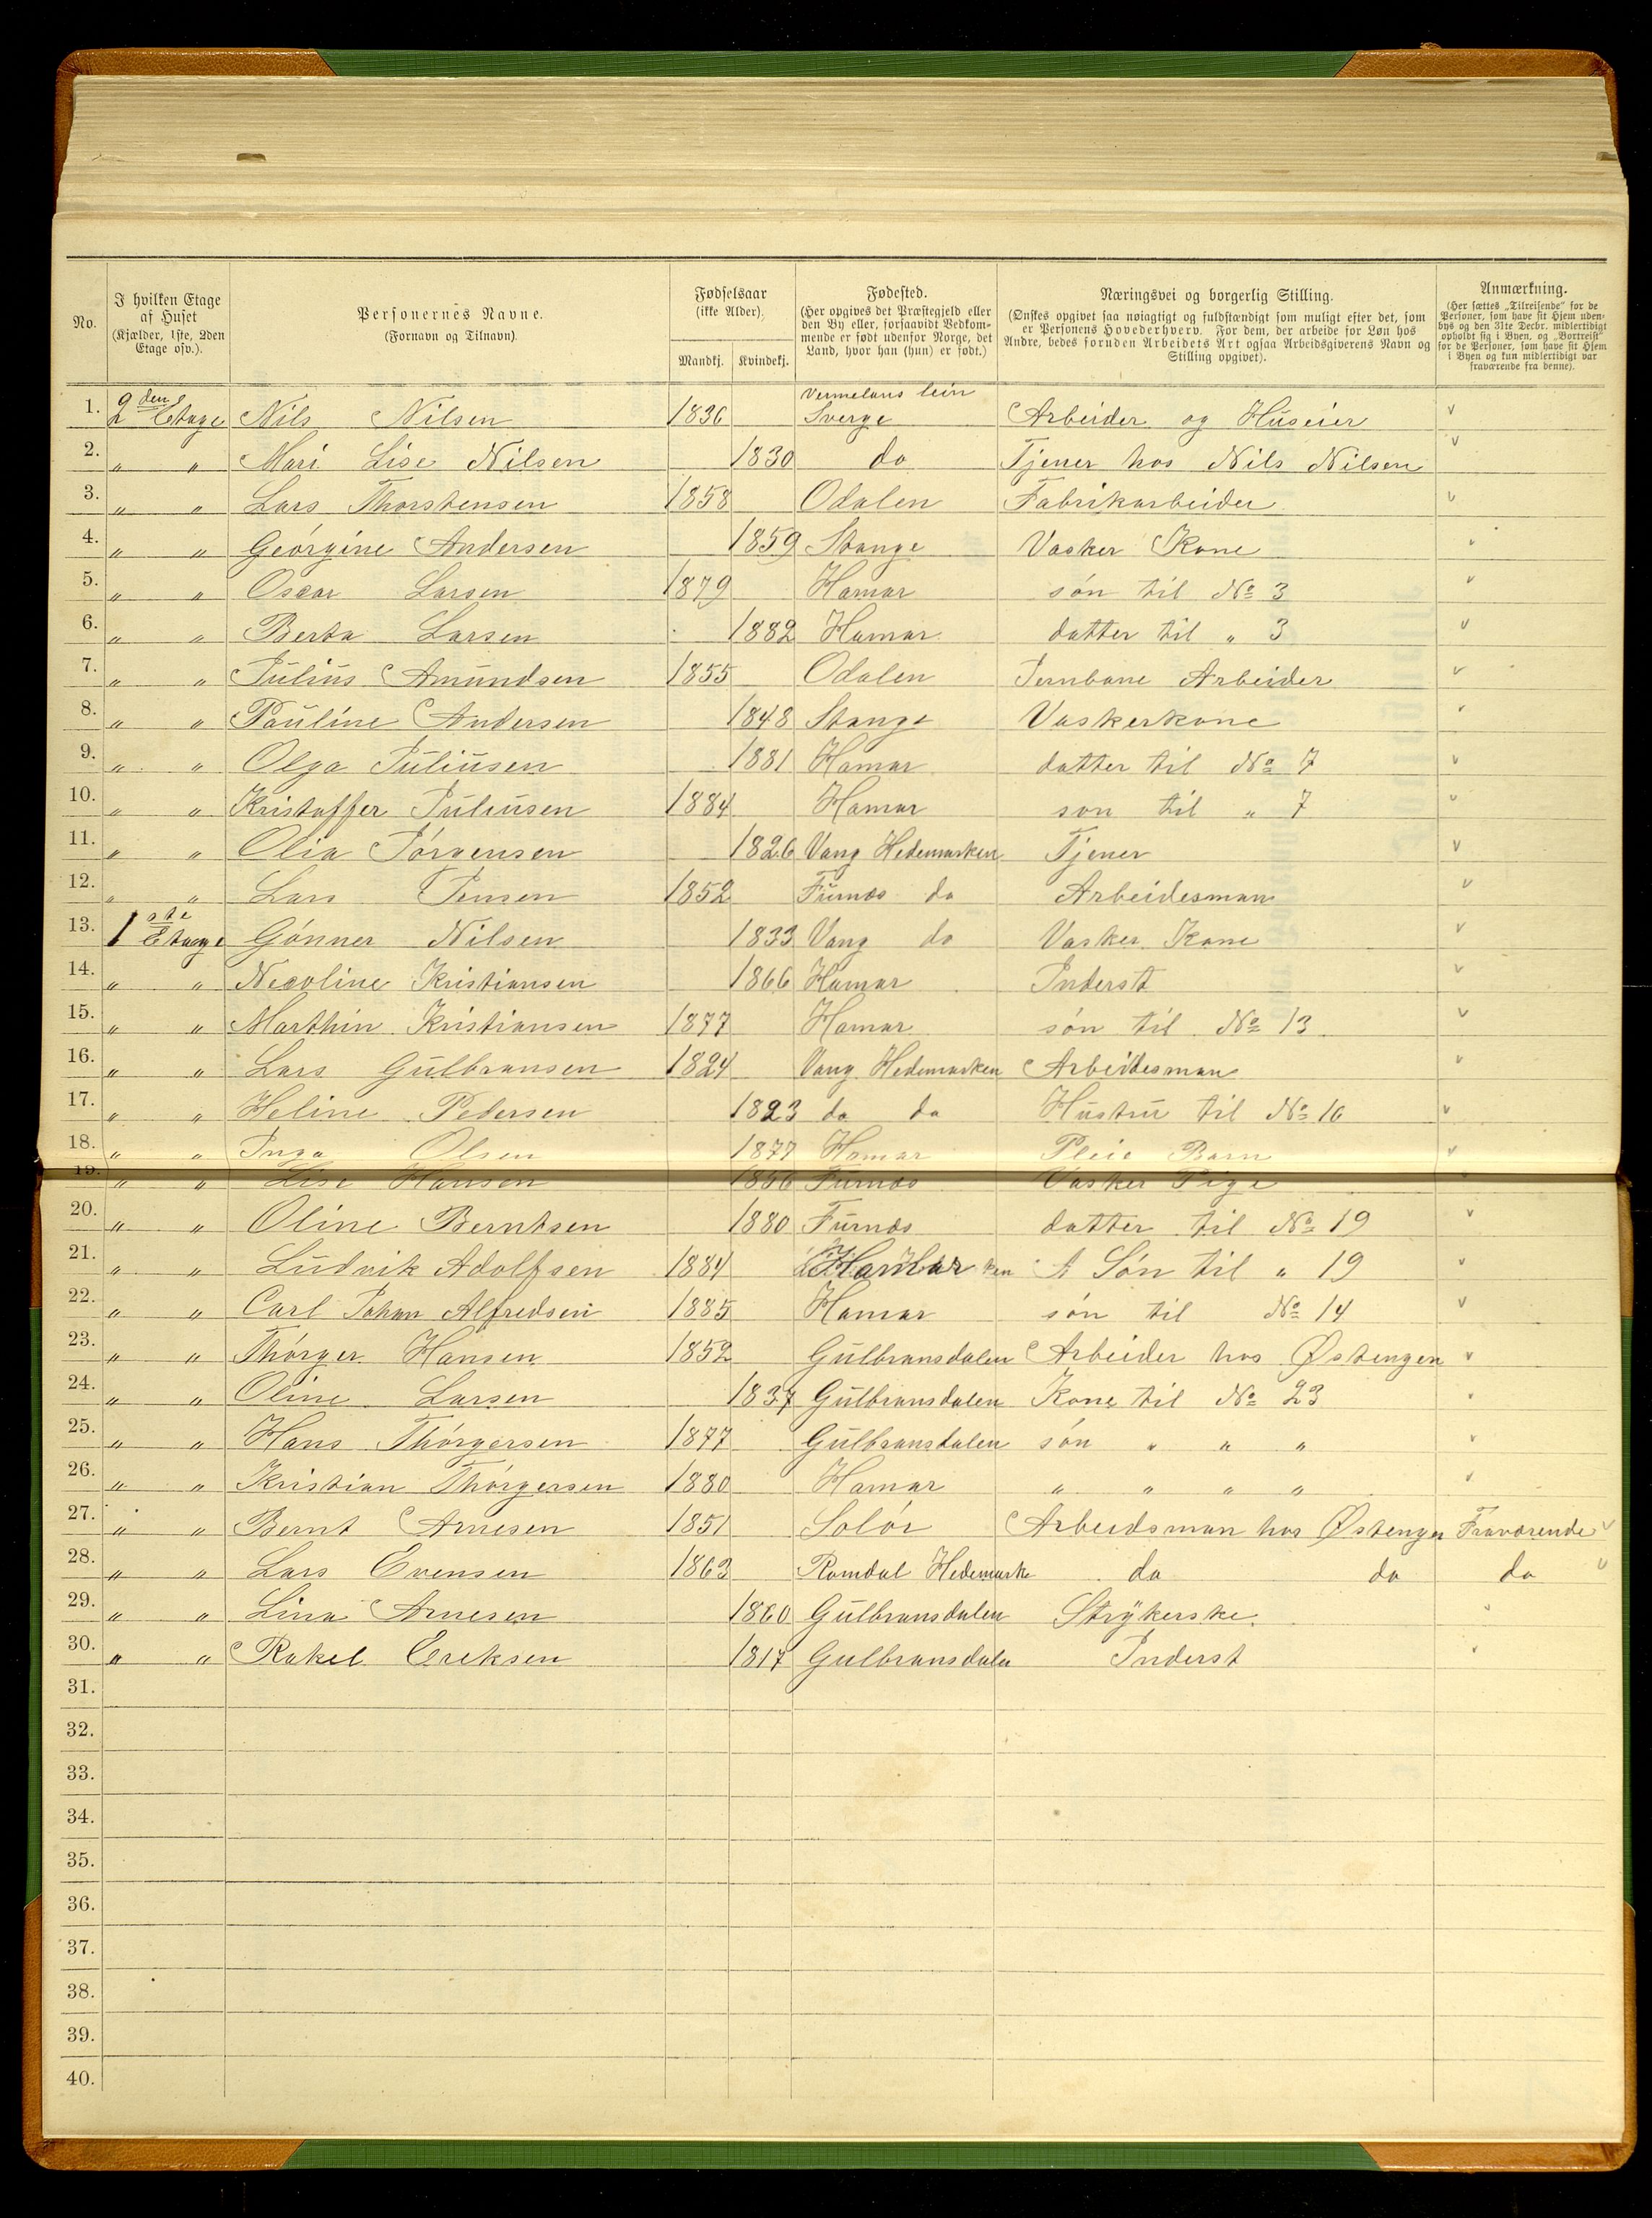 No. I hvilken Etage af Huset (Kjælder, 1ste, 2den Etage osv.). Personernes Navne. (Fornavn og Tilnavn). Fødselsaar (ikke Alder). Mandkj. Kvindekj. Fødested. (Her opgives det Præstegjeld eller den By eller, forsaavidt Vedkommende er født udenfor Norge, det Land, hvor han (hun) er født.) Næringsvei og borgerlig Stilling. (Ønskes opgivet saa nøiagtigt og fuldstændigt som muligt efter det, som er Personens Hovederhverv. For dem, der arbeide for Løn hos Andre, bedes foruden Arbeidets Art ogsaa Arbeidsgiverens Navn og Stilling opgivet). Anmærkning. (Her sættes „Tilreisende" for de Personer, som have sit Hjem udenbys og den 31te Decbr. midlertidigt opholdt sig i Byen, og „Bortreist" for de Personer, som have sit Hjem i Byen og kun midlertidigt var fraværende fra denne).
1. 2den Etage Nils Nilsen 1836 Vermelans lein Sverge Arbeider og Huseier v
2. " " Mari Lise Nilsen 1830 do Tjener hos Nils Nilsen v
3. " " Lars Thorstensen 1858 Odalen Fabrikarbeider v
4. " " Georgine Andersen 1859 Stange Vasker Kone v
5. " " Oscar Larsen 1879 Hamar søn til No 3 v
6. " " Berta Larsen 1882 Hamar datter til " 3 v
7. " " Julius Amundsen 1855 Odalen Jernbane Arbeider v
8. " " Pauline Andersen 1848 Stange Vaskerkone v
9. " " Olga Juliusen 1881 Hamar datter til No 7 v
10. " " Kristoffer Juliusen 1884 Hamar son til " 7 v
11. " " Olia Jörgensen 1826 Vang Hedemarken Tjener v
12. " " Lars Jensen 1852 Furnæs do Arbeidesman v
13. 1ste Etage Gónner Nilsen 1833 Vang do Vasker Kone v
14. " " Necoline Kristiansen 1866 Hamar Inderst v
15. " " Marthin Kristiansen 1877 Hamar søn til No 13 v
16. " " Lars Gulbransen 1824 Vang Hedemarken Arbeidesman v
17. " " Heline Pedersen 1823 do do Hustru til No 16 v
18. " " Inga Olsen 1877 Hamar Pleie Barn v
19. " " Lise Hansen 1856 Furnæs Vasker Pige
20. " " Oline Berntsen 1880 Furnæs datter til No 19 v
21. " " Ludvik Adolfsen 1884 Hamar Søn til " 19 v
22. " " Carl Johan Alfredsen 1885 Hamar søn til No 14 v
23. " " Thórger Hansen 1852 Gulbransdalen Arbeider hos Østengen v
24. " " Oline Larsen 1837 Gulbransdalen Kone til No 23 v
25. " " Hans Thórgersen 1877 Gulbransdalen søn " " " v
26. " " Kristian Thórgersen 1880 Hamar " " " " v
27. " " Bernt Arnesen 1851 Solór Arbeidsman hos Østengen Fraværende v
28. " " Lars Evensen 1863 Romdal Hedemarke do do do v
29. " " Lina Arnesen 1860 Gulbransdalen Strÿkerske v
30. " " Rakel Ereksen 1817 Gulbransdalen Inderst v
31.
32.
33.
34.
35.
36.
37.
38.
39.
40.